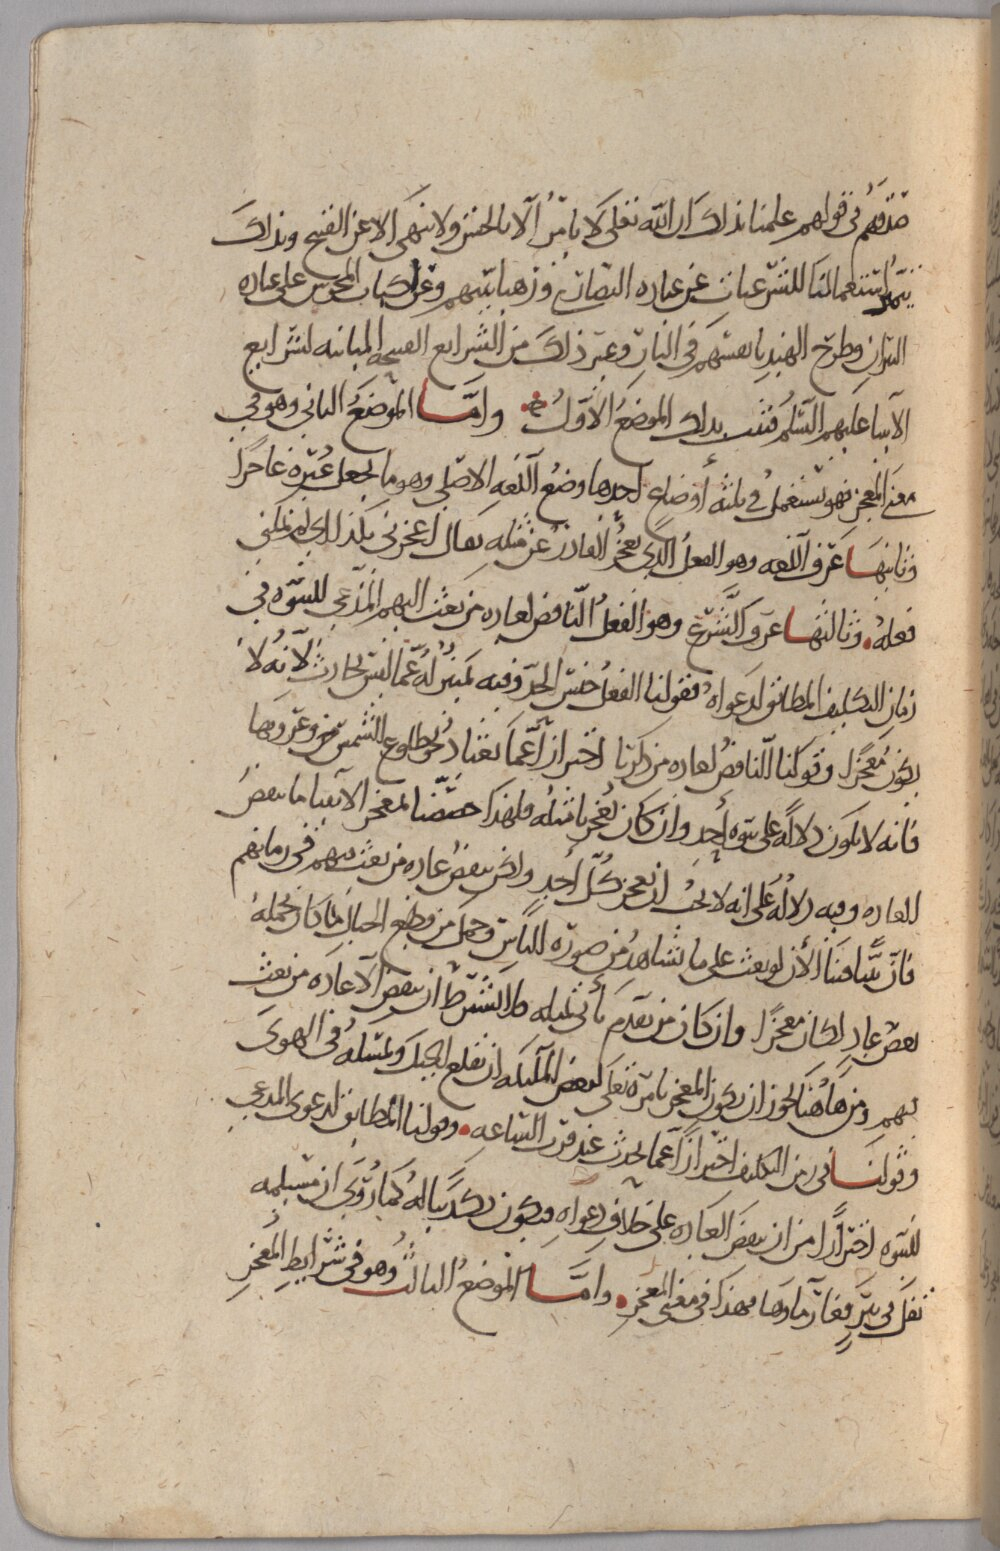 صدقهم في قولهم علمنا بذلك ان الله تعلى لا يامر الا بالحسن ولا ينهى الا عن القبيح وبذلك
يتميز استعمالنا للشرعيات عن عباده النصارى ورهبانيتهم وعن المجوس على عباده
النيران وطرح الهند انفسهم في النار وغير ذلك من الشرايع القبيحه المباينه لشرايع
الانبيا عليهم السلم فثبت بذلك الموضع الاول وامـــا الموضع الثاني وهو في
معنى المعجز فهو يستعمل في ثلثه أوضاع احدها وضع اللغه الاصلي وهو ما يجعل غيره عاجزا
وثانيها عرف اللغه وهو الفعل الذي يعجز القادر عن مثله يقال اعجزني بكذا اي لم يمكني
فعله وثالثها عرف الشرع وهو الفعل الناقض لعاده من بعث اليهم المدعي للنبوه في
زمان التكليف المطابق لدعواه فقولنا الفعل جنس الحد وفيه تميز له عما ليس بحادث لانه لا
يكون معجزا وقولنا الناقض لعاده من ذكرنا احتراز عما يعتاد نحو طلوع الشمس وغروبها
فانه لا يكون دلاله على نبوه أحد وان كان يعجزنا مثله ولهذا خصصنا معجز الانبيا بما نقض
العاده وفيه دلاله على انه لا يجب ان يعجز كل أحد ولكن ينقض عاده من بعث فيهم في زمانهم
فان نبيا هنا الأن لو بعث على ما نشاهد من صوره الناس وحمل من قطع الجبال ما كان يحمله
بعض عاد لكان معجزا وان كان من تقدم يأتي بمثله لان الشرط ان ينقض العاده من بعث
فيهم ومن هاهنا يجوز ان يكون المعجز بامره تعلى لبعض الملئكه ان تقلع الجبل وتمسكه في الهوى
وقولنـــا في زمن التكليف احترازا عما يحدث عند قرب الساعه وقولنا المطابق لدعوى المدعي
للنبوه احترازا من ان ينقض العاده على خلاف دعواه فيكون تكذيبا له كما روي ان مسيلمه
تفل في بئر فغار ماوها فهذا في معنى المعجز وامـــا الموضع الثالث وهو في شرايط المعجز